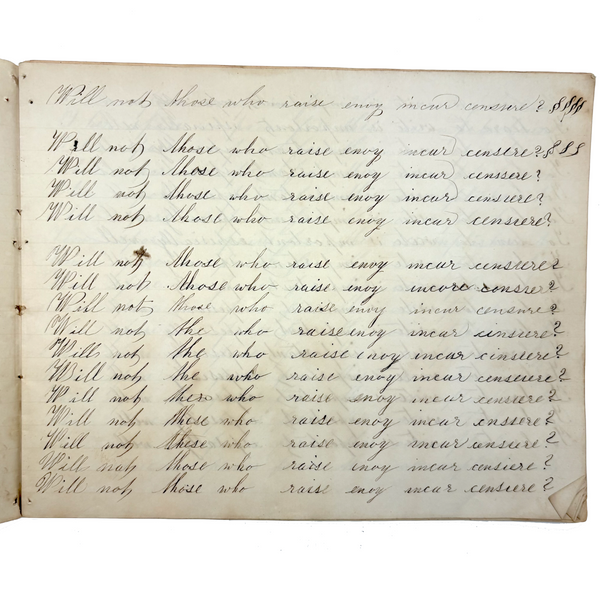 Will not those who raise envy incur censure? $$$
Will not those who raise envy incur censure? $$$
Will not those who raise envy incur censure?
Will not those who raise envy incur censure?
Will not those who raise envy incur censure?
Will not those who raise envy incur censure?
Will not those who raise envy censure?
Will not those who raise envy incur censure?
Will not the who raise envy incur censure?
Will not the who raise envy incur censure?
Will not the who raise envy incur censure?
Will not who raise envy incur censure?
Will not these who raise envy incur censure?
Will not these who raise envy incur censure?
Will not those who raise envy incur censure?
Will not those who raise envy incur censure?